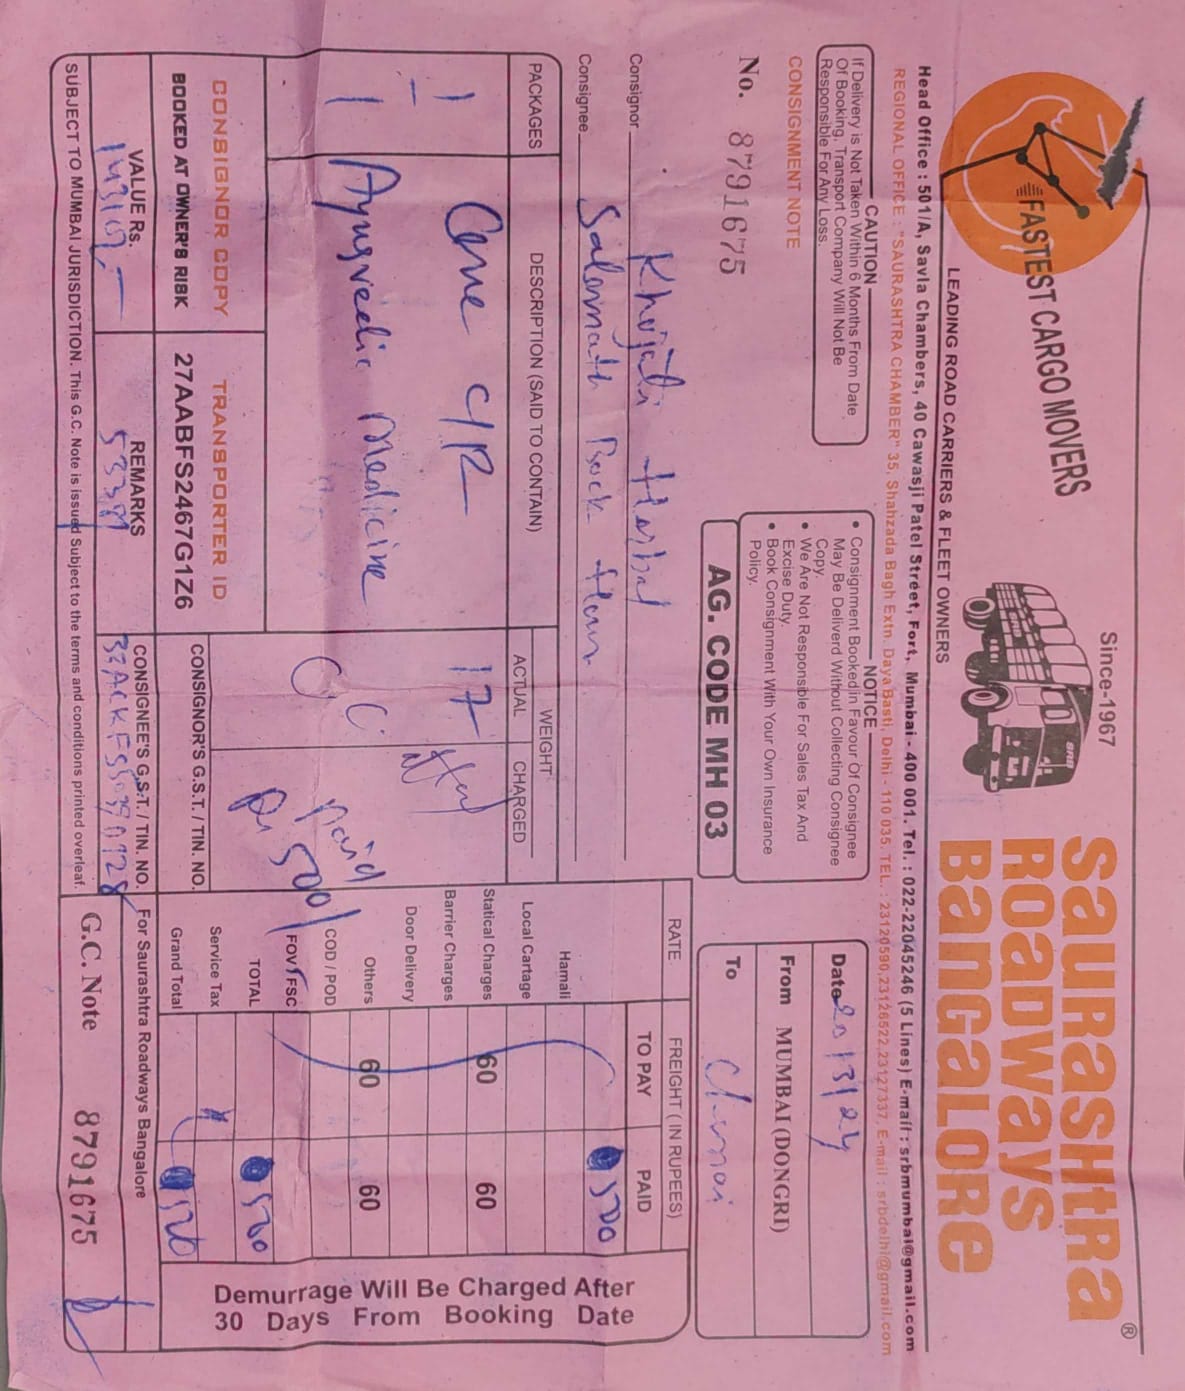 FASTEST CARGO MOVERS
Since-1967
SRB
SaURaSHtRa
ROaDWays
BaNGaLORe
®
LEADING ROAD CARRIERS & FLEET OWNERS
Head Office : 501/A, Savla Chambers, 40 Cawasji Patel Street, Fort, Mumbai - 400 001. Tel. : 022-22045246 (5 Lines) E-mail : srbmumbai@gmail.com
REGIONAL OFFICE : "SAURASHTRA CHAMBER" 35, Shahzada Bagh Extn. Daya Basti, Delhi - 110 035. TEL. : 23120590,23126522,23127337, E-mail : srbdelhi@gmail.com
CAUTION
If Delivery is Not Taken Within 6 Months From Date
Of Booking, Transport Company Will Not Be
Responsible For Any Loss.
NOTICE
• Consignment Booked in Favour Of Consignee
May Be Deliverd Without Collecting Consignee
Copy.
• We Are Not Responsible For Sales Tax And
Excise Duty.
• Book Consignment With Your Own Insurance
Policy.
Date 20/3/24
From MUMBAI (DONGRI)
To Chennai
CONSIGNMENT NOTE
No. 8791675
AG. CODE MH 03
Consignor Khojati Herbal
Consignee Salamath Book
PACKAGES
DESCRIPTION (SAID TO CONTAIN)
WEIGHT
ACTUAL
CHARGED
RATE
FREIGHT (IN RUPEES)
TO PAY
PAID
1
One C/R
17
1
Ayurvedic medicine
paid
Rs 500/
500
Hamali
Local Cartage
Statical Charges 60 60
Barrier Charges
Door Delivery
Others 60 60
COD / POD
FOV / FSC
TOTAL
Service Tax
Grand Total
Demurrage Will Be Charged After
30 Days From Booking Date
CONSIGNOR COPY
BOOKED AT OWNER'S RISK
TRANSPORTER ID
27AABFS2467G1Z6
CONSIGNOR'S G.S.T. / TIN. NO.
VALUE Rs.
REMARKS
CONSIGNEE'S G.S.T. / TIN. NO.
For Saurashtra Roadways Bangalore
G.C. Note 8791675
SUBJECT TO MUMBAI JURISDICTION. This G.C. Note is issued Subject to the terms and conditions printed overleaf.